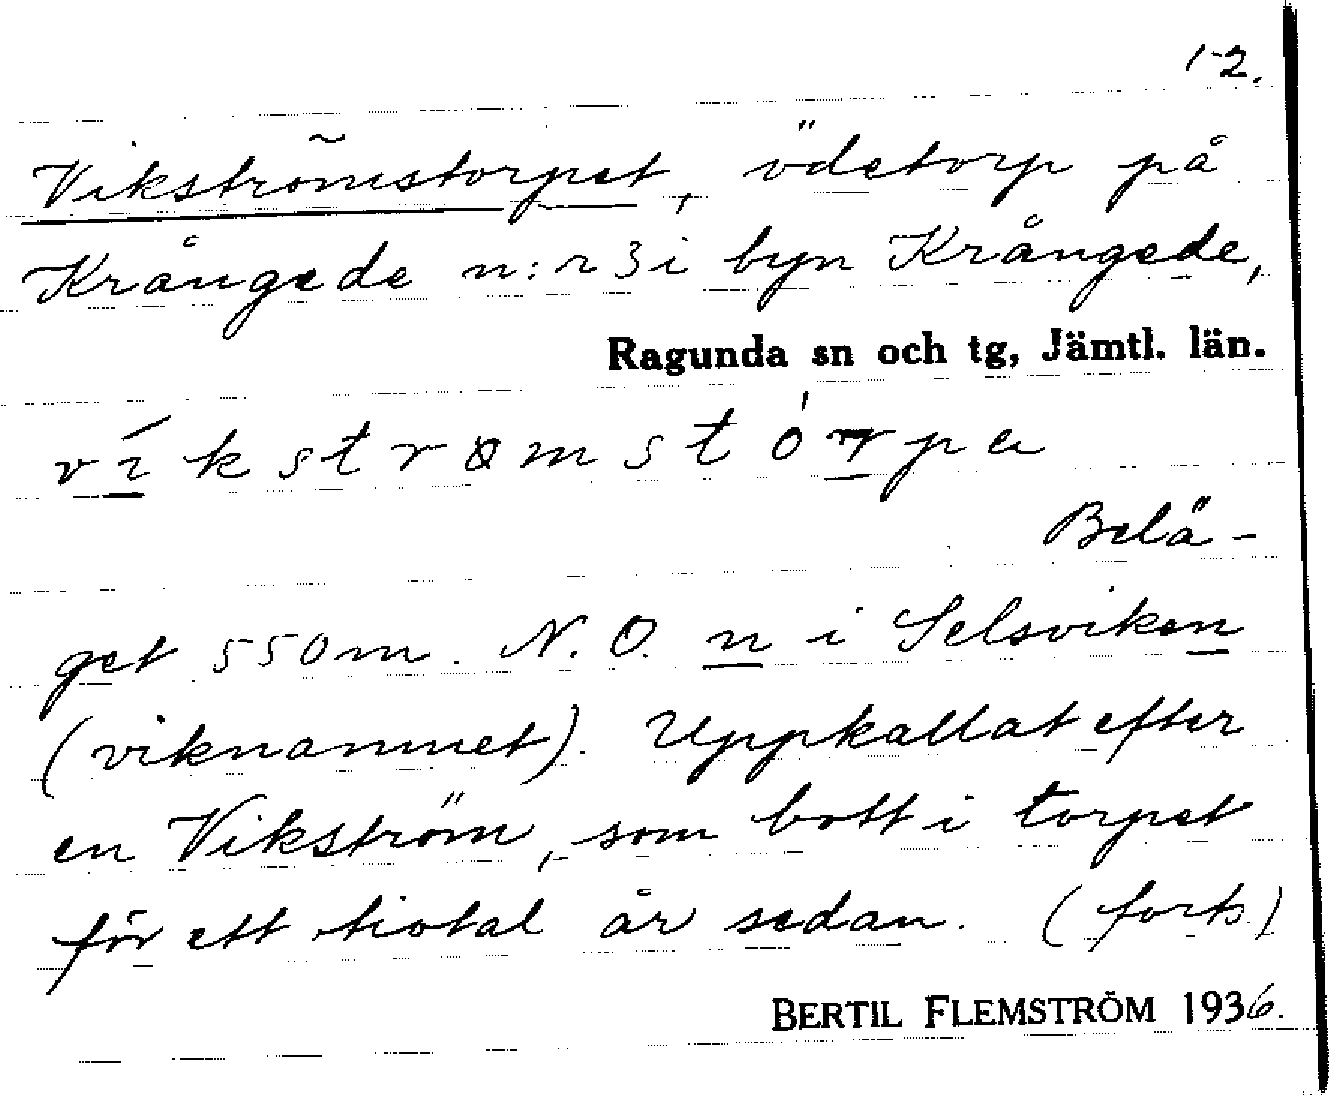 1-2.
Vikströmstorpet, ödetorp på
Krångede n:r 3 i byn Krångede,
Ragunda sn och tg, Jämtl. län.
víkstrømstórpa
Belä-
get 550 m. N.O. n i Selsviken
(viknamnet). Uppkallat efter
en Vikström, som bott i torpet
för ett tiotal år sedan. (forts.)
BERTIL FLEMSTRÖM 1936.